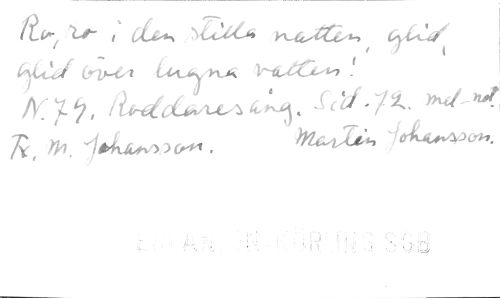 Ro, ro i den stilla natten, glid,
glid över lugna vatten!
N. 79. Roddaresång. Sid. 72. mel-not.
Tx. M. Johansson. Martin Johansson.
SGB